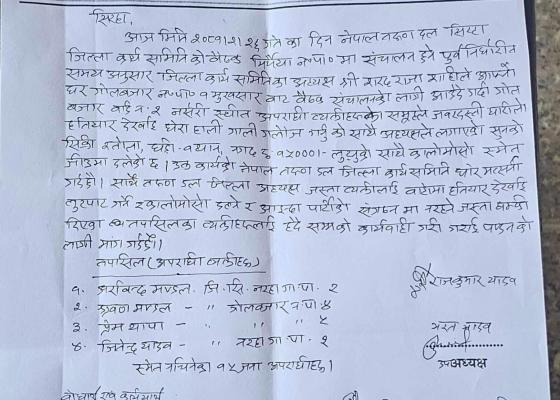 सिरहा,
आज मिति २०८१।२।२६ गते का दिन नेपाल तरुण दल सिरहा
जिल्ला कार्य समितिको बैठक मिर्चैया न०पा० मा संचालन हुने पुर्व निर्धारित
समय अनुसार जिल्ला कार्य समितिका अध्यक्ष श्री शरद राजा शाहीले आफ्नो
घर गोलबजार न०पा० १ मुख्सार बाट बैठक संचालनको लागी आउँदै गर्दा गोल
बजार वडा न: २ नर्सरी स्थीत अपराधी व्यक्तीहरुको समुहले जबरजस्ती घातीला
हतियार देखाई घेरा हाली गाली गलौज गर्नु को साथै अध्यक्षले लगाएको सुनको
सिक्री १ तोला, घडी-१ थान, नगद रु १५०००।- लुट्नुको साथै कालोमोसो समेत
जीउमा दलेको छ। उक्त कार्यको नेपाल तरुण दल जिल्ला कार्य समिति घोर भर्त्सना
गर्दछौ। साथै तरुण दल जिल्ला अध्यक्ष जस्ता व्यक्तीलाई बाटोमा हतियार देखाई
लुटपाट गर्ने र कालोमोसो दल्ने र आइन्दा पार्टीको संगठन मा नरहने जस्ता धम्की
दिएका व्य तपसिलका व्यक्तीहरुलाई हदै सम्मको कार्यवाही गरी गराई पाउनको
लागी माग गर्दछौ।
तपसिल (अपराधी व्यक्तीहरु)
१. अरविन्द मण्डल - जि. सि. नरहा गा.पा. २
२. श्रवण मण्डल - " गोलबजार न.पा ४
३. प्रेम थापा - " " " ५
४. जितेन्द्र यादव - " नरहा गा.पा. २
समेत नचिनेका १५ जना अपराधीहरु।
राजकुमार यादव
भरत यादव
उपअध्यक्ष